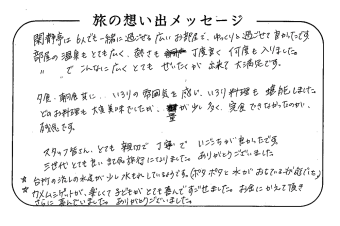 旅の想い出メッセージ
閑静亭は6人でも一緒に過ごせる広いお部屋で、ゆっくりと過ごせて良かったです。
部屋の温泉もとても広く、熱さも丁度良く何度も入りました。
〃 で こんなに広く とても ぜいたくが 出来て 大満足です。
夕食・朝食共に、いろりの雰囲気を感じ、いろり料理も堪能しました。
どのお料理も大変美味でしたが、量が少し多く、完食できなかったのが、
残念です。
スタッフ皆さん、とても親切で丁寧でいごこちが良かったです。
三世代とても良い家族旅行になりました。ありがとうございました
☆ 台所の流しの水道が少し水もれしているようです。(ポタポタと水がおちている所で)
☆ カメムシゲットが、楽しくて子どもがとても喜んですごせました。お金にかえて頂き
さらに喜んでいました。ありがとうございました。